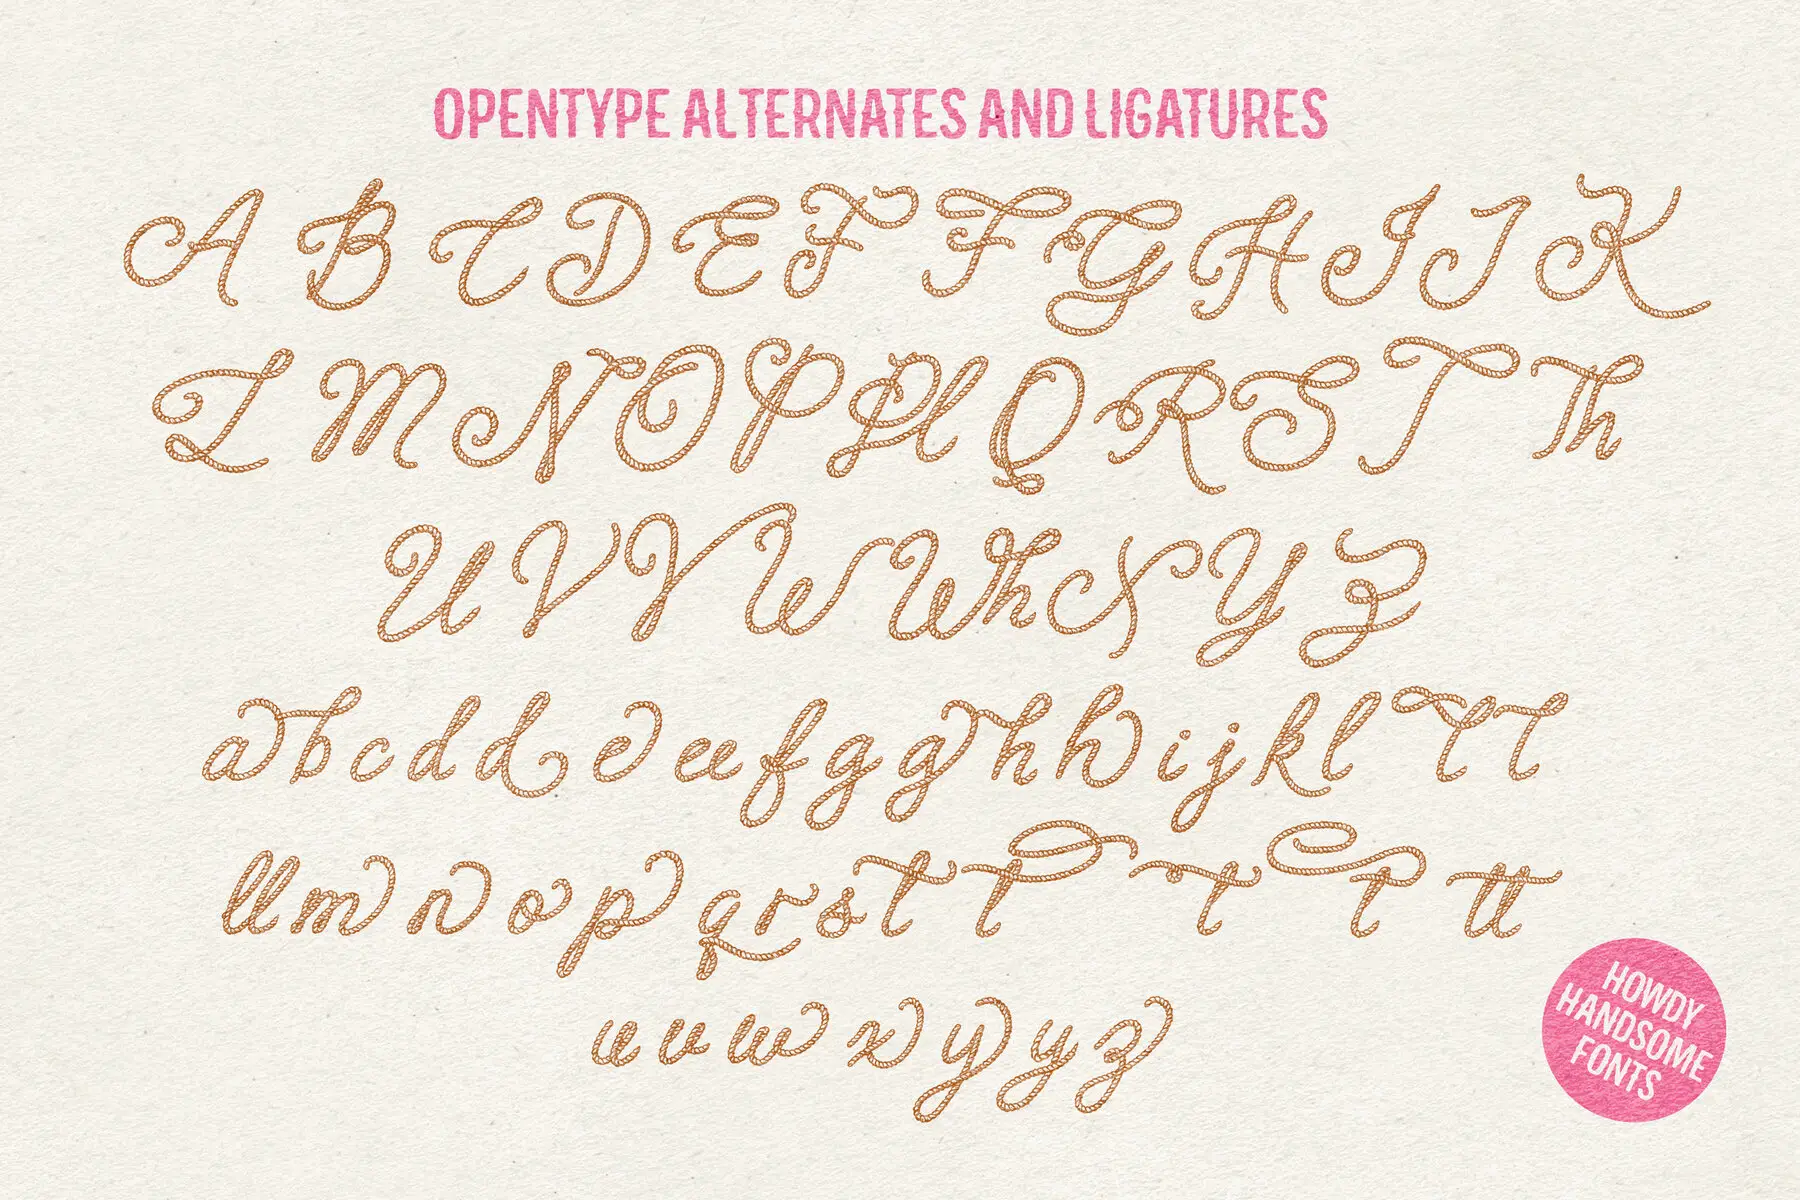 OPENTYPE ALTERNATES AND LIGATURES
A B C D E F F G H I J K
L M N O P Pl Q R S T Th
U V V W Wh X Y Z
a b c d d e ee f g g h h i j k l l l
ll m n o p q r s t t t t tt
u v w x y y z
HOWDY
HANDSOME
FONTS